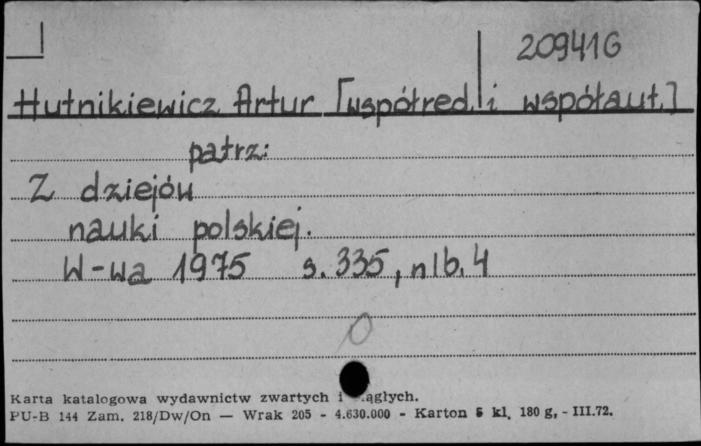 209416
Hutnikiewicz Artur [współred. i współaut.]
patrz:
Z dziejów
nauki polskiej.
W-wa 1975 s. 335, nlb. 4
0
Karta katalogowa wydawnictw zwartych i ągłych.
PU-B 144 Zam. 218/Dw/On — Wrak 205 - 4.630.000 - Karton 5 kl. 180 g, - III.72.